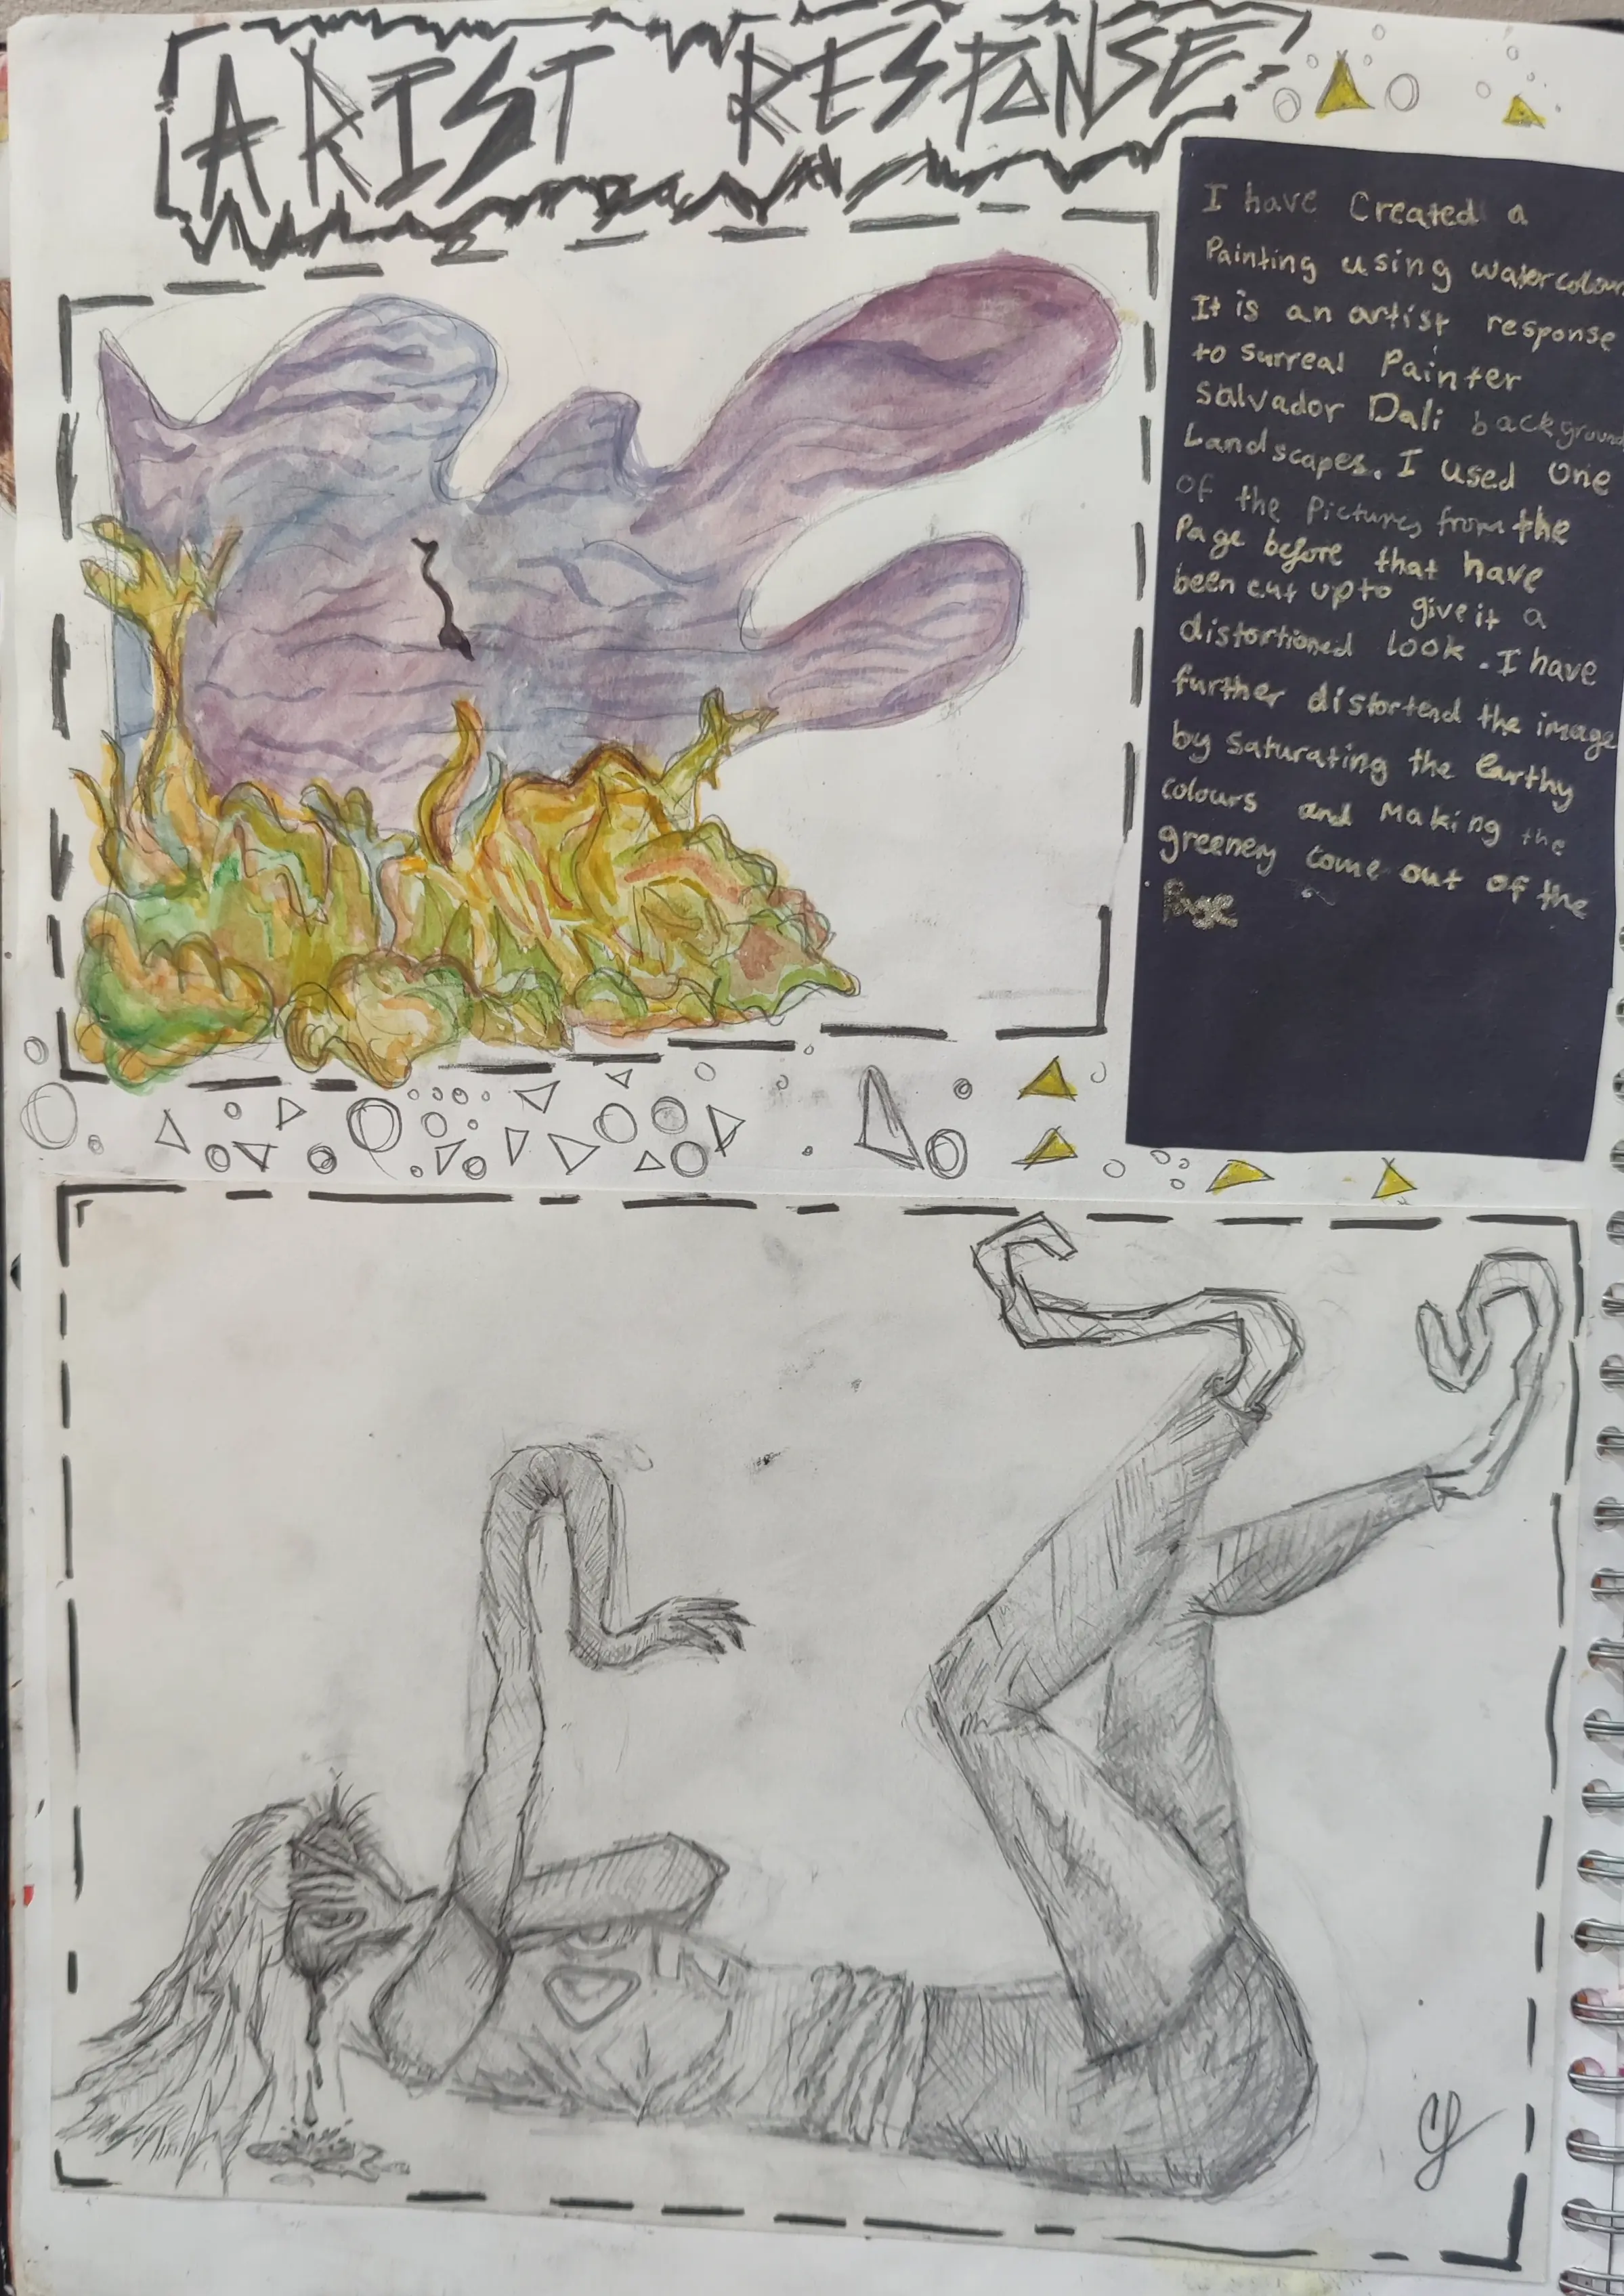 ARIST RESPONSE
I have Created a
Painting using watercolour
It is an artist response
to surreal Painter
Salvador Dali background
Landscapes. I used One
of the Pictures from the
Page before that have
been cut up to give it a
distortioned look. I have
further distortend the image
by saturating the Earthy
colours and Making the
greenery come out of the
Page